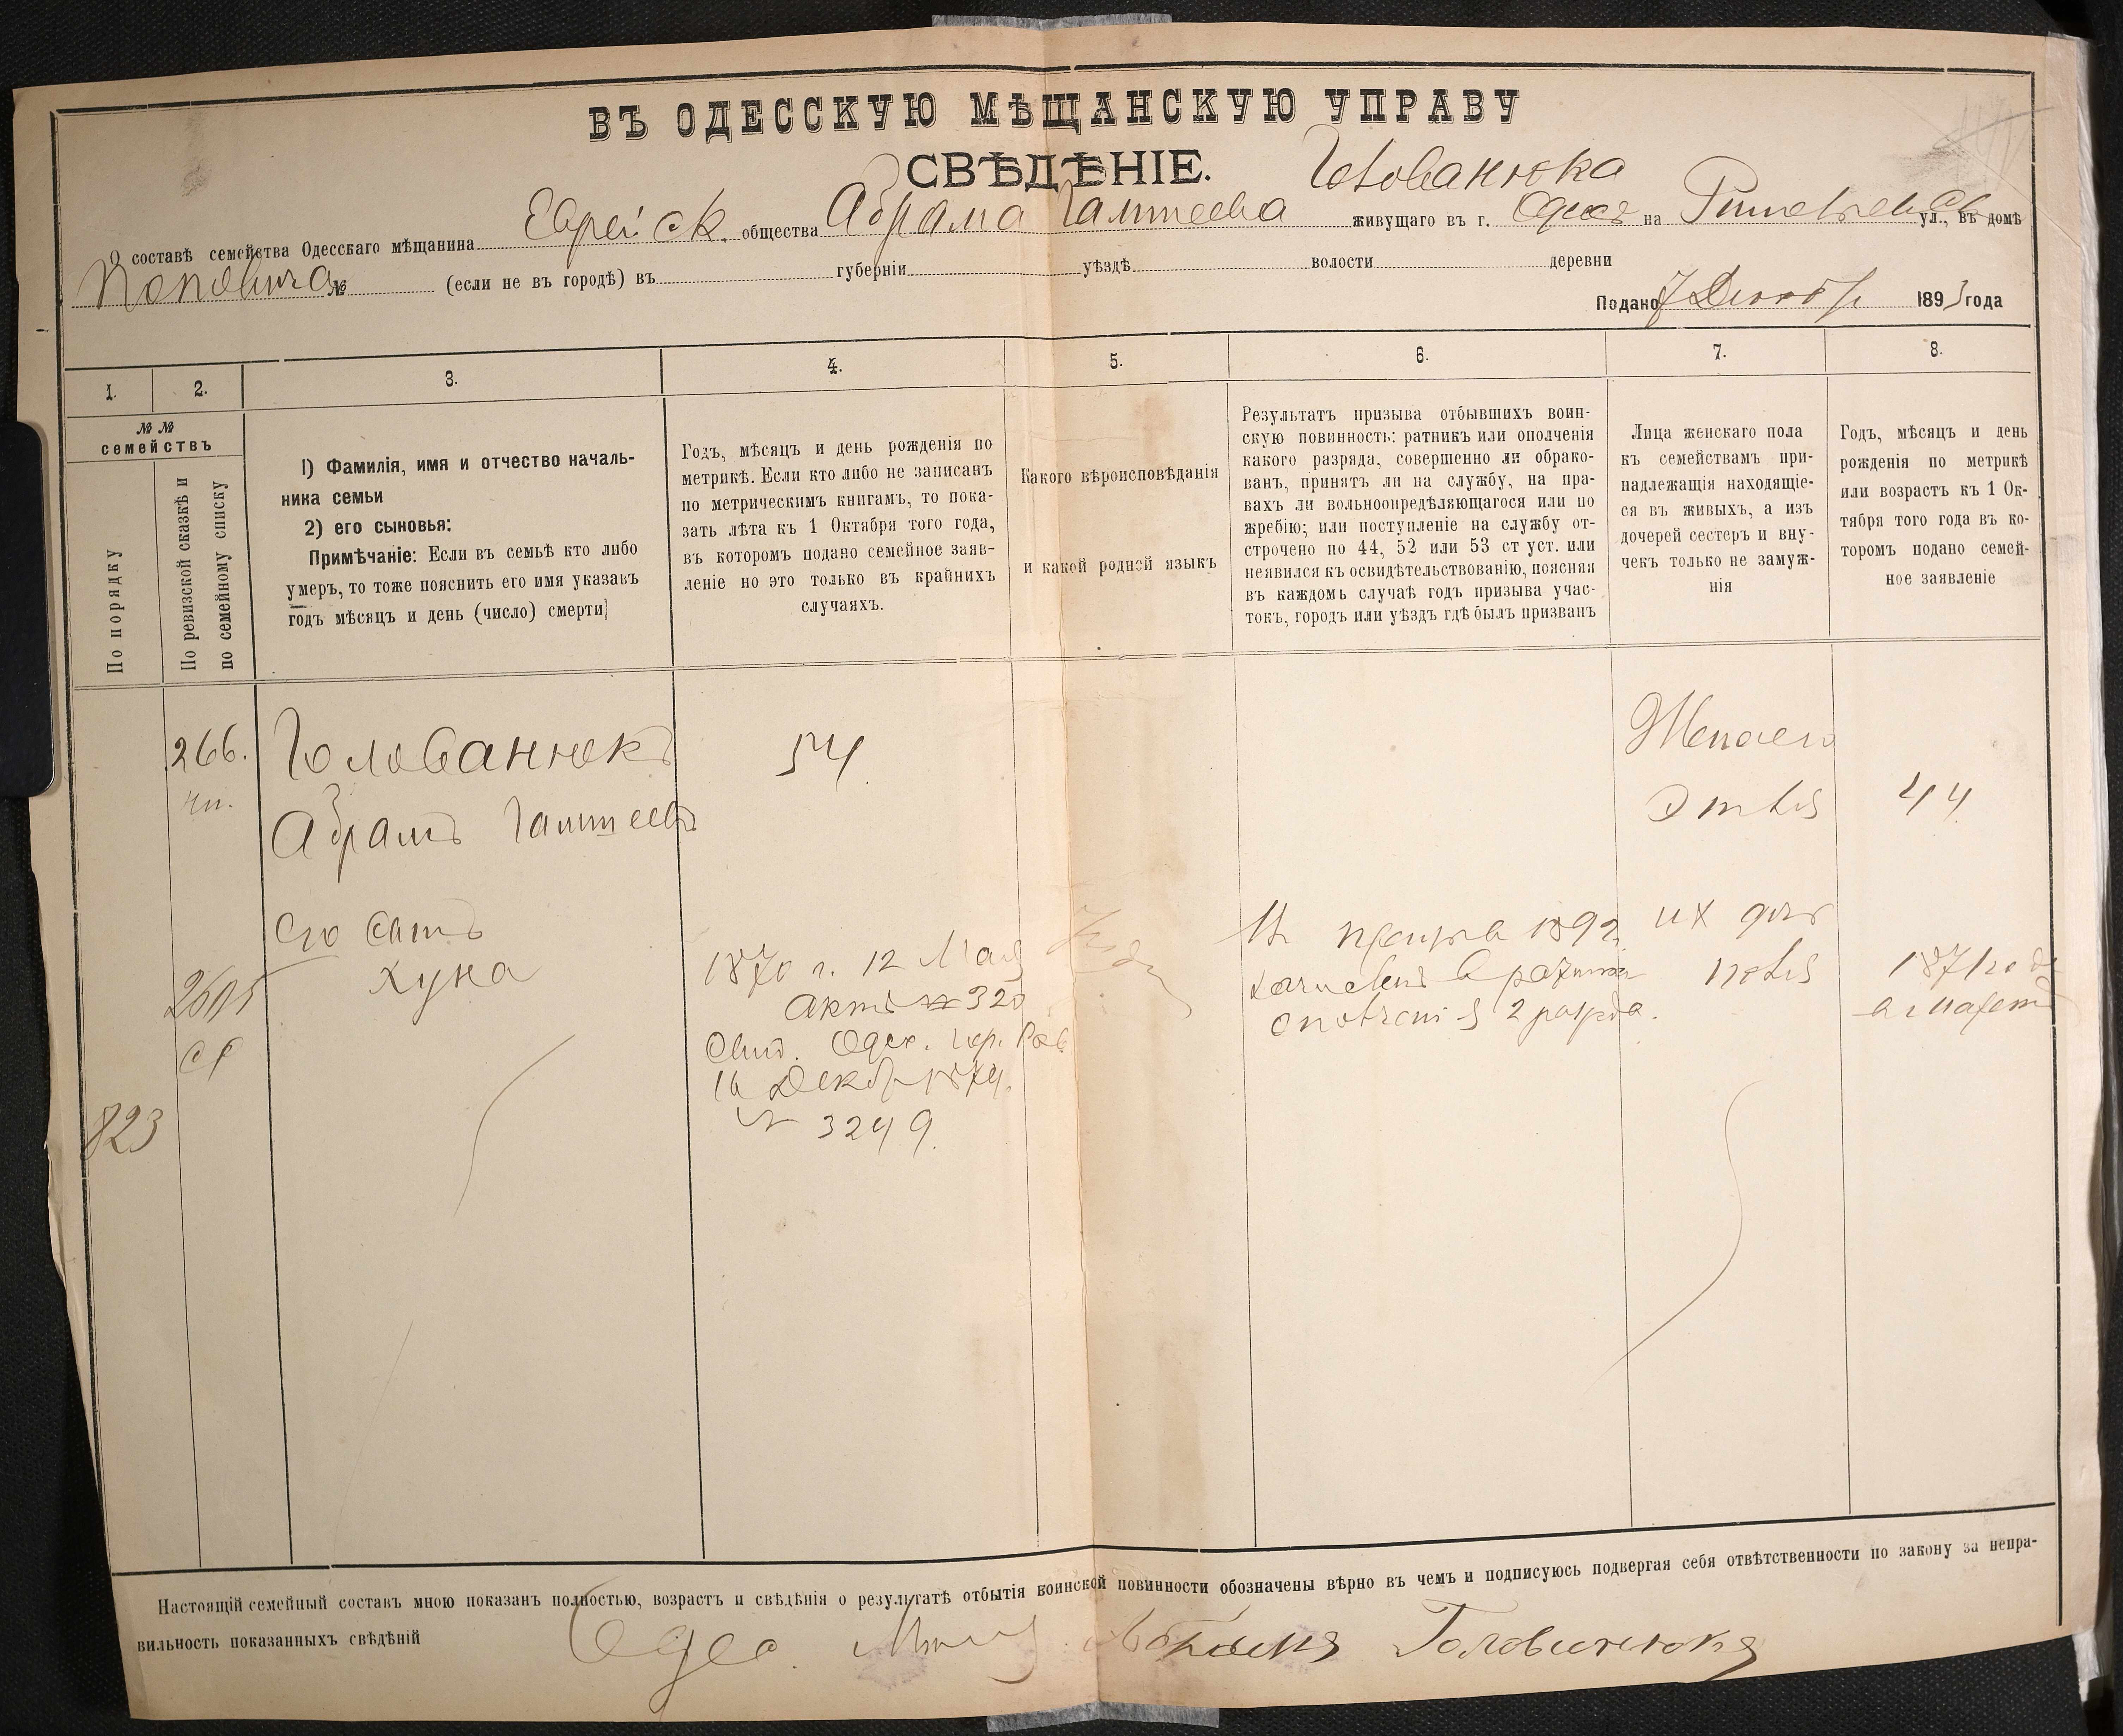 ВЪ ОДЕССКУЮ МѢЩАНСКУЮ УПРАВУ
СВѢДѢНІЕ.
Голованюка
О составѣ семейства Одесскаго мѣщанина Еврейск. общества Абрама живущаго въ г. Одессѣ на ул., въ домѣ
Поповича № (если не въ городѣ) въ губерніи уѣздѣ волости деревни
Подано 7 Декабр 1893 года
1. 2. 3. 4. 5. 6. 7. 8.
№ №
семействъ
По порядку
По ревизской сказкѣ и
по семейному списку
I) Фамилія, имя и отчество началь-
ника семьи
2) его сыновья:
Примѣчаніе: Если въ семьѣ кто либо
умеръ, то тоже пояснить его имя указавъ
годъ мѣсяцъ и день (число) смерти
Годъ, мѣсяцъ и день рожденія по
метрикѣ. Если кто либо не записанъ
по метрическимъ книгамъ, то пока-
зать лѣта къ 1 Октября того года,
въ которомъ подано семейное заяв-
леніе но это только въ крайнихъ
случаяхъ.
Какого вѣроисповѣданія
и какой родной языкъ
Результатъ призыва отбывшихъ воин-
скую повинность: ратникъ или ополченія
какого разряда, совершенно ли обрако-
ванъ, принятъ ли на службу, на пра-
вахъ ли вольноопредѣляющагося или по
жребію; или поступленіе на службу от-
строчено по 44, 52 или 53 ст уст. или
неявился къ освидѣтельствованію, поясняя
въ каждомъ случаѣ годъ призыва учас-
токъ, городъ или уѣздъ гдѣ былъ призванъ
Лица женскаго пола
къ семействамъ при-
надлежащія находящіе-
ся въ живыхъ, а изъ
дочерей сестеръ и вну-
чекъ только не замуж-
нія
Годъ, мѣсяцъ и день
рожденія по метрикѣ
или возрастъ къ 1 Ок-
тября того года въ ко-
торомъ подано семей-
ное заявленіе
266. Голованюкъ 54 Жена его
Абрамъ Этля 44
Его Сынъ
Хуна
1870 г. 12 Мая
Актъ № 320
Свид. Одес. Гор. Рав.
16 Декабр 1874.
№ 3249.
призыва 1892
2 разряда.
их доч
1871 года
823
Настоящій семейный составъ мною показанъ полностью, возрастъ и свѣдѣнія о результатѣ отбытія воинской повинности обозначены вѣрно въ чемъ и подписуюсь подвергая себя отвѣтственности по закону за непра-
вильность показанныхъ свѣдѣній
Одес. Абрамъ Голованюкъ